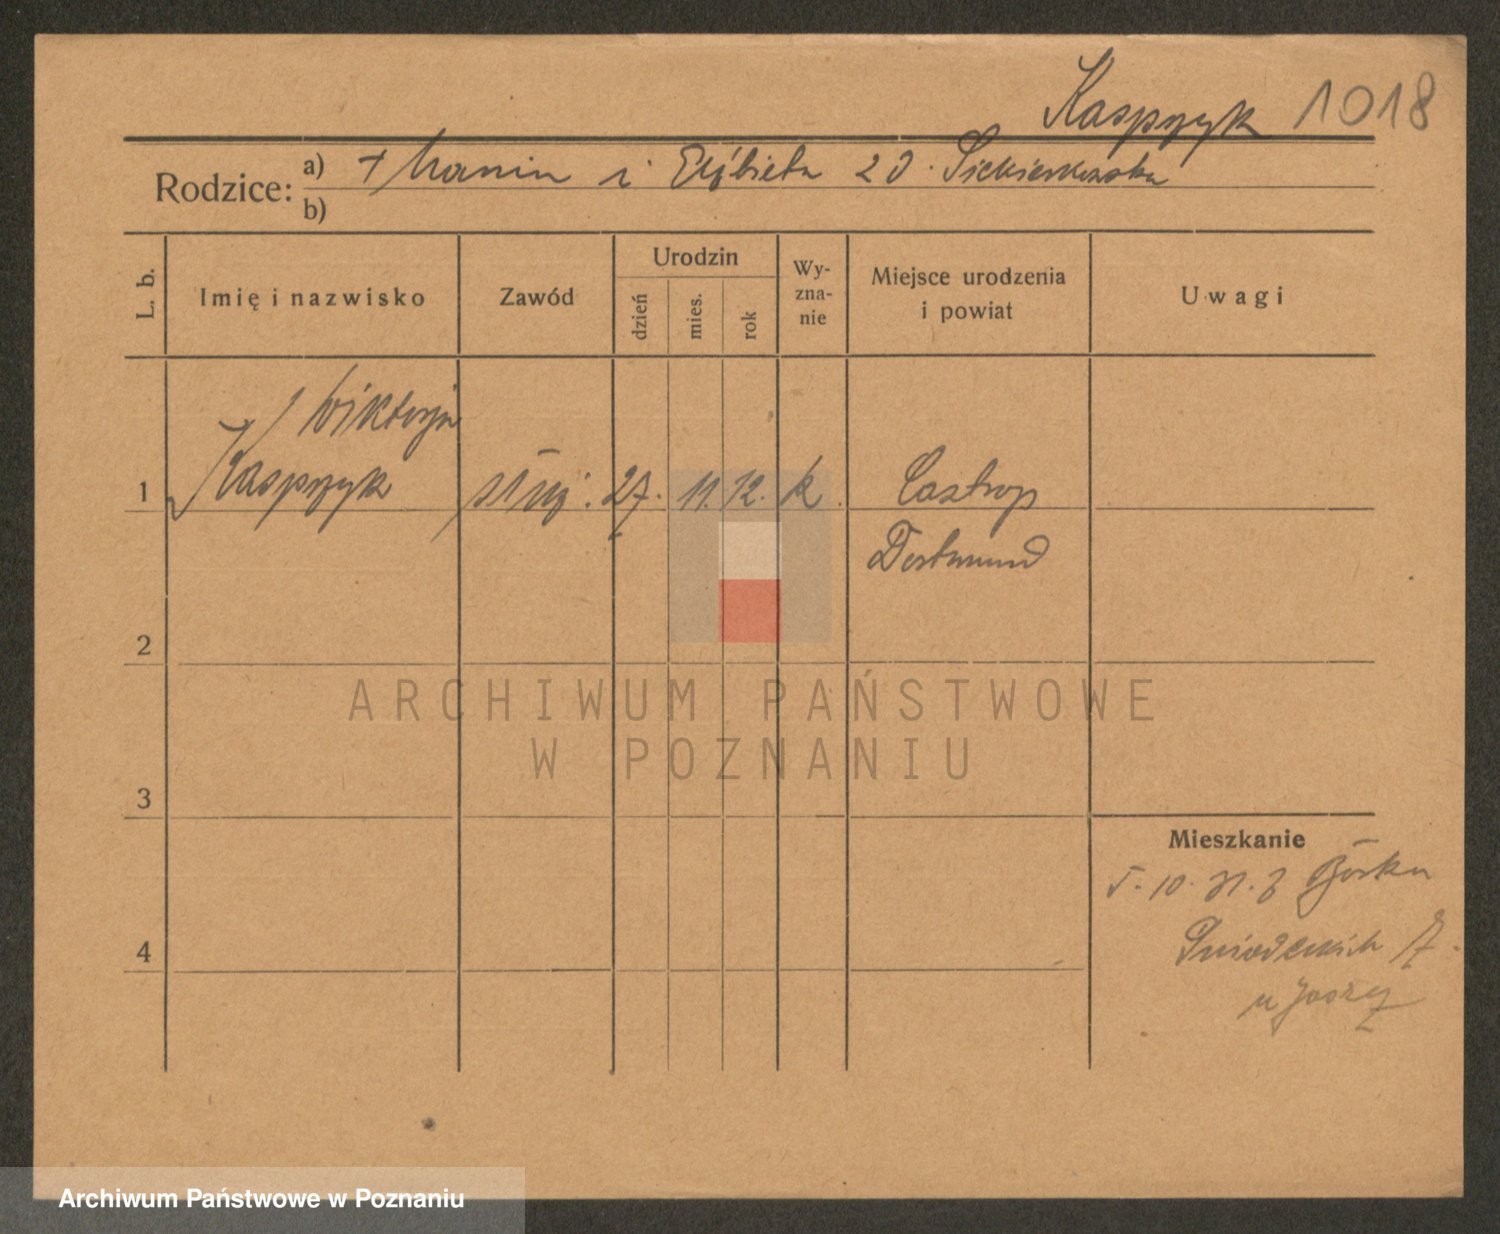 Kasprzyk 1018
Rodzice: a) + Marcin i Elżbieta z d. Siekierkowska
b)
L. b.
Imię i nazwisko
Zawód
Urodzin
dzień
mies.
rok
Wy-
zna-
nie
Miejsce urodzenia
i powiat
Uwagi
Wiktorja
1 Kasprzyk służ. 27. 11. 12. k. Castrop
Dortmund
2
ARCHIWUM PAŃSTWOWE
W POZNANIU
3
Mieszkanie
5. 10. 31. z Górka
4
Śniadeckich 7.
u
Archiwum Państwowe w Poznaniu